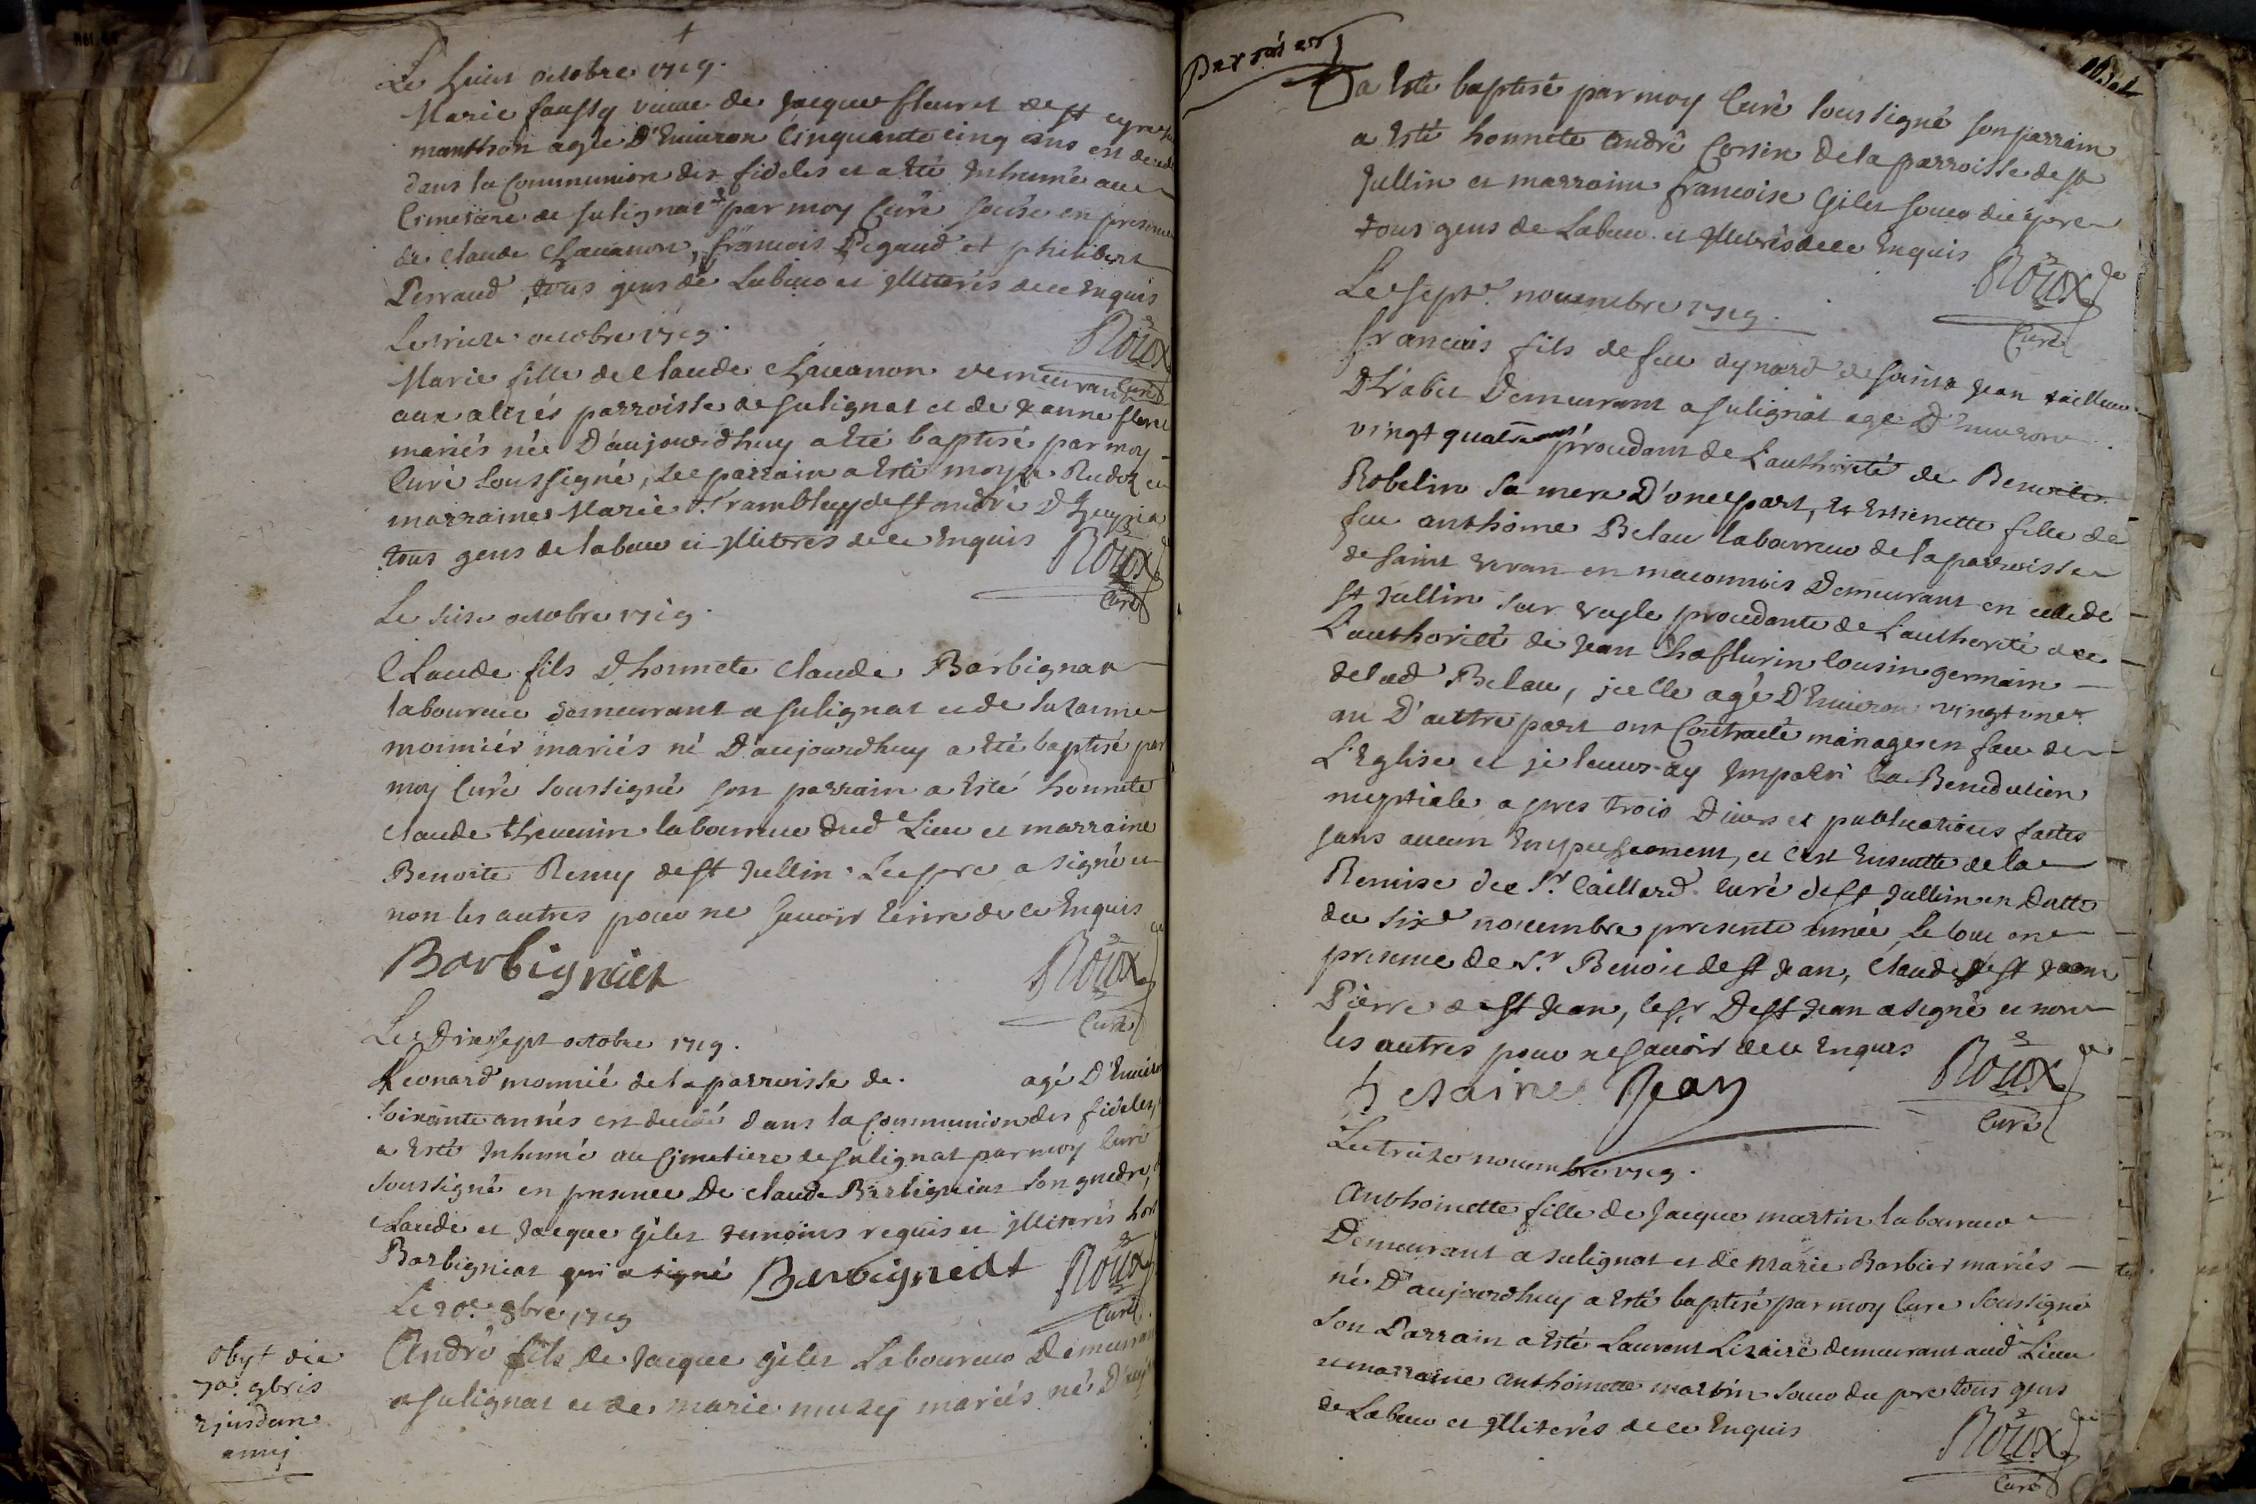 Le huict octobre 1719.
Marie faussy veuve de Jacque fleuret de st cyre sur
manthon agée D'Environ Cinquante cinq ans est decedé
dans la Communion des fideles et a Eté Inhumé au
Cimetiere de sulignat par moy Curé sousé en presence
de claude Chavanon, francois Pegaud et philibert
Perraud, tous gens de Labeur et Illiterés de ce Enquis
Roux
Curé
Le treize octobre 1719.
Marie fille de claude Chavanon demeurant
aux alizés parroisse de sulignat et de Jeanne fleuret
mariés née D'aujourdhuy a Eté baptisé par moy
Curé soussigné, Le parrain a Esté moyse Rudoz et
marraine Marie Trambluy de st andré D'huyria
tous gens de labeur et Illiterés de ce Enquis
Roux
Curé
Le seize octobre 1719.
Claude fils D'honnete claude Barbignat
laboureur demeurant a sulignat et de suzanne
monniér mariés né D'aujourdhuy a Eté baptisé par
moy Curé soussigné son parrain a Esté honnete
claude thevenin laboureur dud Lieu et marraine
Benoite Remy de st Jullin. Le pere a signé et
non les autres pour ne scavoir Ecrire de ce Enquis
Barbigniat
Roux
Curé
Le Dixsept octobre 1719.
Leonard monnié de la parroisse de. agé D'Environ
soixante années est decedé dans la Communion des fideles
a Esté Inhumé au Cimetiere de sulignat par moy Curé
soussigné en presence De claude Barbigniat son gendre,
Claude et Jacque Gilet temoins requis et Illiterés hors
Barbigniat qui a signé Barbigniat
Roux
Curé
Le 20e 8bre 1719
André fils de Jacque Gilet Laboureur Demeurant
a sulignat et de marie muzy mariés né D'aujo
obyt die
7a. 9bris
ejusdem
annj
a Esté baptisé par moy Curé soussigné son parrain
a Esté honnete André Corsin de la parroisse de st
Jullin et marraine francoise Gilet
tous gens de Labeur et Illiterés de ce Enquis
Roux
Curé
Le sept novembre 1719.
francois fils de feu aynard de saint Jean tailleur
D'habit Demeurant a sulignat agé D'Environ
vingt quatre ans procedant de L'authorité de Benoite
Robelin sa mere D'une part, Et Estienette fille de
feu anthoine Belau laboureur de la parroisse
de saint veran en maconnois Demeurant en celle de
st Jullin sur veyle procedante de L'authorité de
L'authorité de Jean Chaflurin cousin germain
de lad Belau, icelle agé D'Environ vingt un
an D'auttre part ont Contracté mariage en face de
L'Eglise et je leurs ay Imparti la Benediction
nuptiale apres trois Divers et publications faites
sans aucun Empeschement, et c'est Ensuitte de la
Remise de Sr Caillard curé de st Jullin en Datte
du six novembre presente année, le tout en
presence de Sr Benoit de st Jean, claude de st Jean
Pierre de st Jean, le sr De st Jean a signé et non
les autres pour ne scavoir de ce Enquis
De saint Jean
Roux
Curé
Le treize novembre 1719.
Anthoinette fille de Jacque martin laboureur
Demeurant a sulignat et de marie Barbier mariés
né D'aujourdhuy a Esté baptisé par moy Curé soussigné
son Parrain a Esté Laurent Lizaire demeurant aud Lieu
et marraine anthoinette martin soeur du pere tous gens
de Labeur et Illiterés de ce Enquis
Roux
Curé